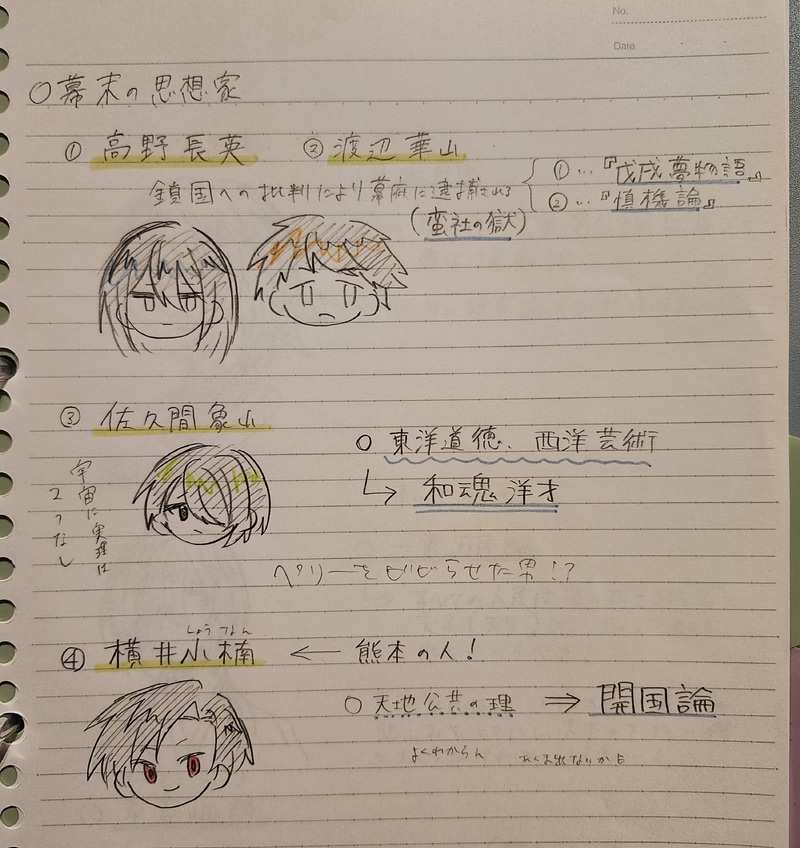 No.
Date
○幕末の思想家
① 高野長英 ② 渡辺華山
鎖国への批判により幕府に逮捕される
(蛮社の獄)
①…『戊戌夢物語』
②…『慎機論』
③ 佐久間象山
宇宙に実理は
2つなし
○ 東洋道徳、西洋芸術
↳ 和魂洋才
ペリーをビビらせた男!?
しょうなん
④ 横井小楠 ← 熊本の人!
○ 天地公共の理 ⇒ 開国論
よくわからん